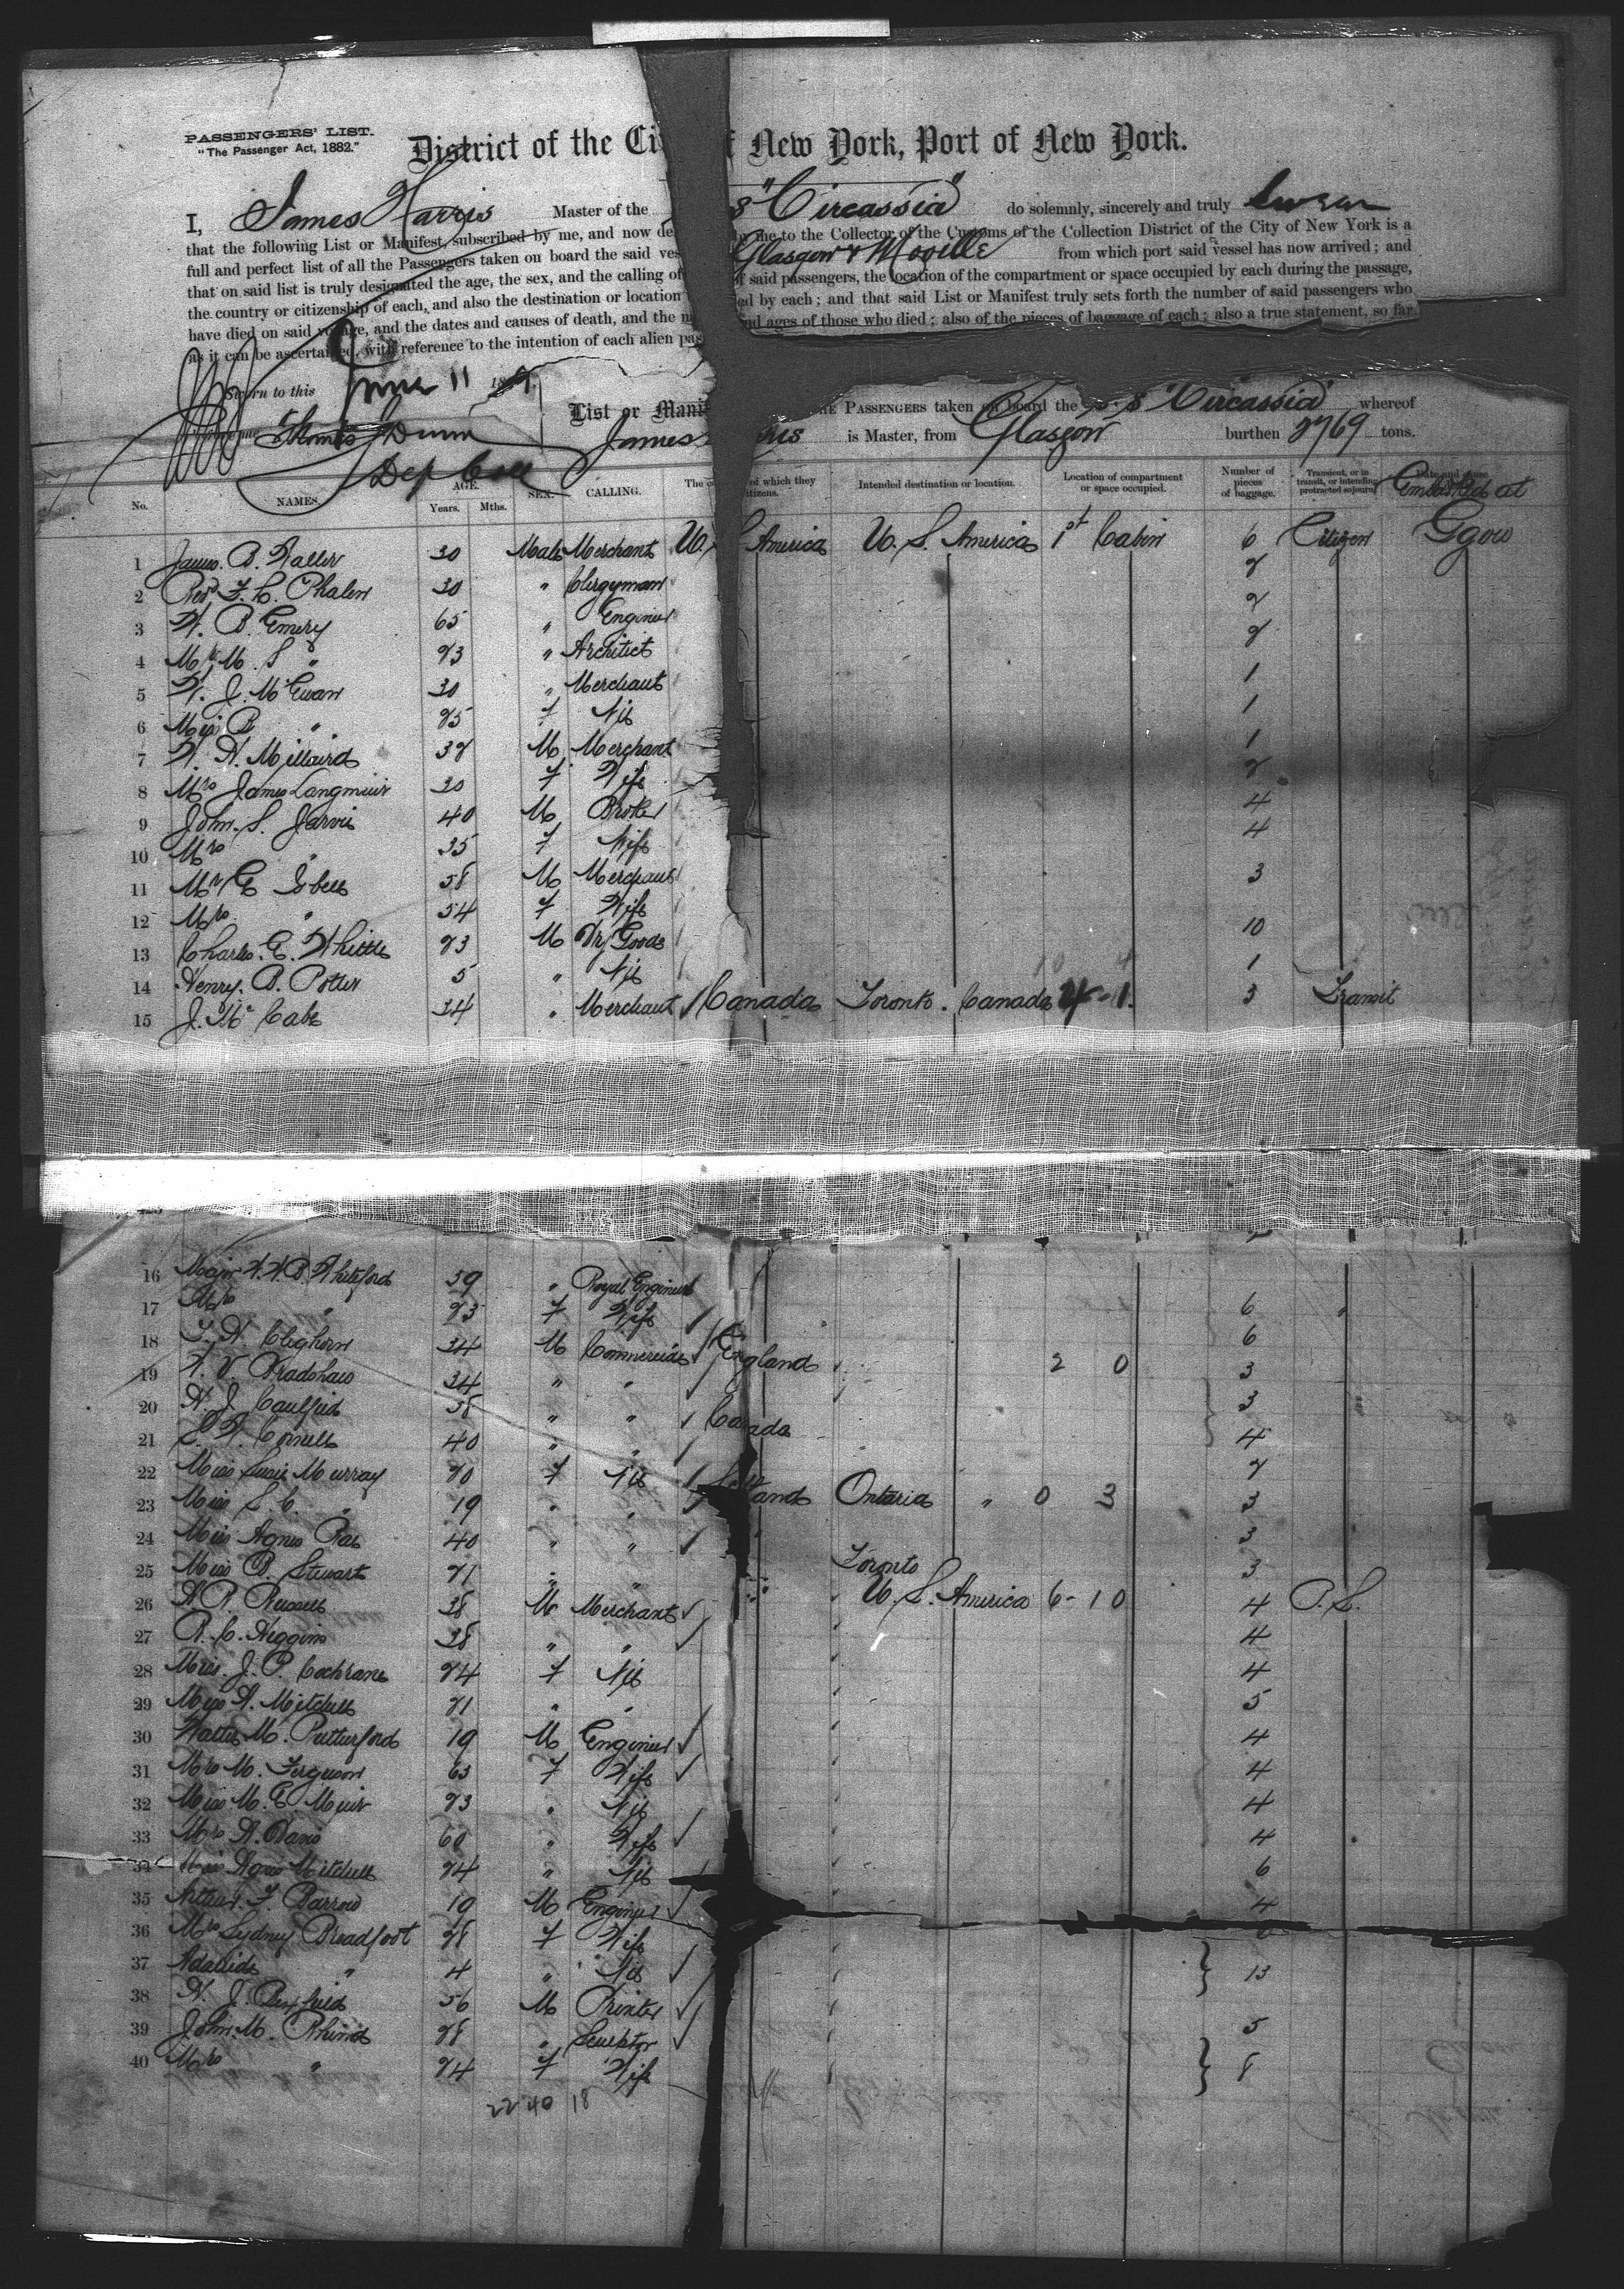 PASSENGERS' LIST.
"The Passenger Act, 1882."
District of the Ci f New York, Port of New York.
I, James Harris Master of the S "Circassia" do solemnly, sincerely and truly swear
that the following List or Manifest, subscribed by me, and now de by me to the Collector of the Customs of the Collection District of the City of New York is a
full and perfect list of all the Passengers taken on board the said ves Glasgow & Moville from which port said vessel has now arrived; and
that on said list is truly designated the age, the sex, and the calling of f said passengers, the location of the compartment or space occupied by each during the passage,
the country or citizenship of each, and also the destination or location ed by each; and that said List or Manifest truly sets forth the number of said passengers who
have died on said voyage, and the dates and causes of death, and the n nd ages of those who died; also of the pieces of baggage of each; also a true statement, so far
as it can be ascertained, with reference to the intention of each alien pas
Sworn to this June 11
Thomas Dunn
Dep Coll
List or Manif HE PASSENGERS taken on board the S.S "Circassia" whereof
James ris is Master, from Glasgow burthen 2769 tons.
No. NAMES. AGE. Years. Mths. SEX. CALLING. The co of which they itizens. Intended destination or location. Location of compartment or space occupied. Number of pieces of baggage. Transient, or in transit, or intending protracted sojourn. Date and cause Embarked at
1 James. B. Waller 30 Male Merchant U. S America U. S. America 1st Cabin 6 Citizen Ggow
2 Revd F. C. Phalen 30 " Clergyman 2
3 W. B. Emery 65 " Engineer 2
4 Mr M. S " 23 " Architect 2
5 W. J. McEwan 30 " Merchant 1
6 Miss B " 25 F Nil 1
7 W. H. Millaird 32 M Merchant 1
8 Mrs James Langmuir 30 F Wife 2
9 John. S. Jarvis 40 M Broker 4
10 Mrs " 35 F Wife 4
11 Mr G Isbell 58 M Merchant 3
12 Mrs " 54 F Wife
13 Charles. E. Whittle 23 M Dry Goods 10
14 Henry. B. Potter 5 " Nil 1
15 J. Mc Cabe 34 " Merchant Canada Toronto. Canada 4-1. 3 Transit
16 Major W. W. B. Whiteford 59 " Royal Engineer
17 Mrs " 23 F Wife 6 "
18 T. H. Cleghorn 34 M Commercial England 2 0 6
19 W. V. Bradshaw 34 " " 3
20 H. J. Caulfield 38 " " Canada 3
21 S. W. Cornell 40 " " 4
22 Miss Susie Murray 20 F Nil 2
23 Miss S. C. " 19 " " land Ontario " 0 3 3
24 Miss Agnes Rae 40 " " 3
25 Miss B. Stewart 21 " " Toronto 3
26 A R. Russell 38 M Merchant U. S. America 6-10 4 P. S.
27 R. C. Higgins 38 " " 4
28 Miss. J. P. Cochrane 24 F Nil 4
29 Miss A. Mitchell 21 " " 5
30 Walter M. Rutherford 19 M Engineer 4
31 Mrs M. Ferguson 63 F Wife 4
32 Miss M. E Muir 23 " Nil 4
33 Mrs A. Davis 60 " Wife 4
34 Miss Agnes Mitchell 24 " Nil 6
35 Arthur. F. Barrow 19 M Engineer 4
36 Mrs Sydney Broadfoot 28 F Wife
37 Adelaide " 4 " Nil 13
38 H. J. Penfield 56 M Printer
39 John. M. Rhind 28 " Sculptor 5
40 Mrs " 24 F Wife 8
22 40 18